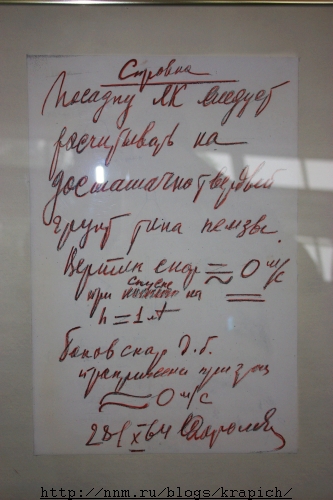 Справка
Посадку ЛК следует
расчитывать на
достаточно твердый
грунт типа пемзы.
Вертик скор ≈ 0 м/с
при спуске на
h = 1 м
Боков скор д.б.
≈ 0 м/с
28/X 64 СКоролев
http://nnm.ru/blogs/krapich/